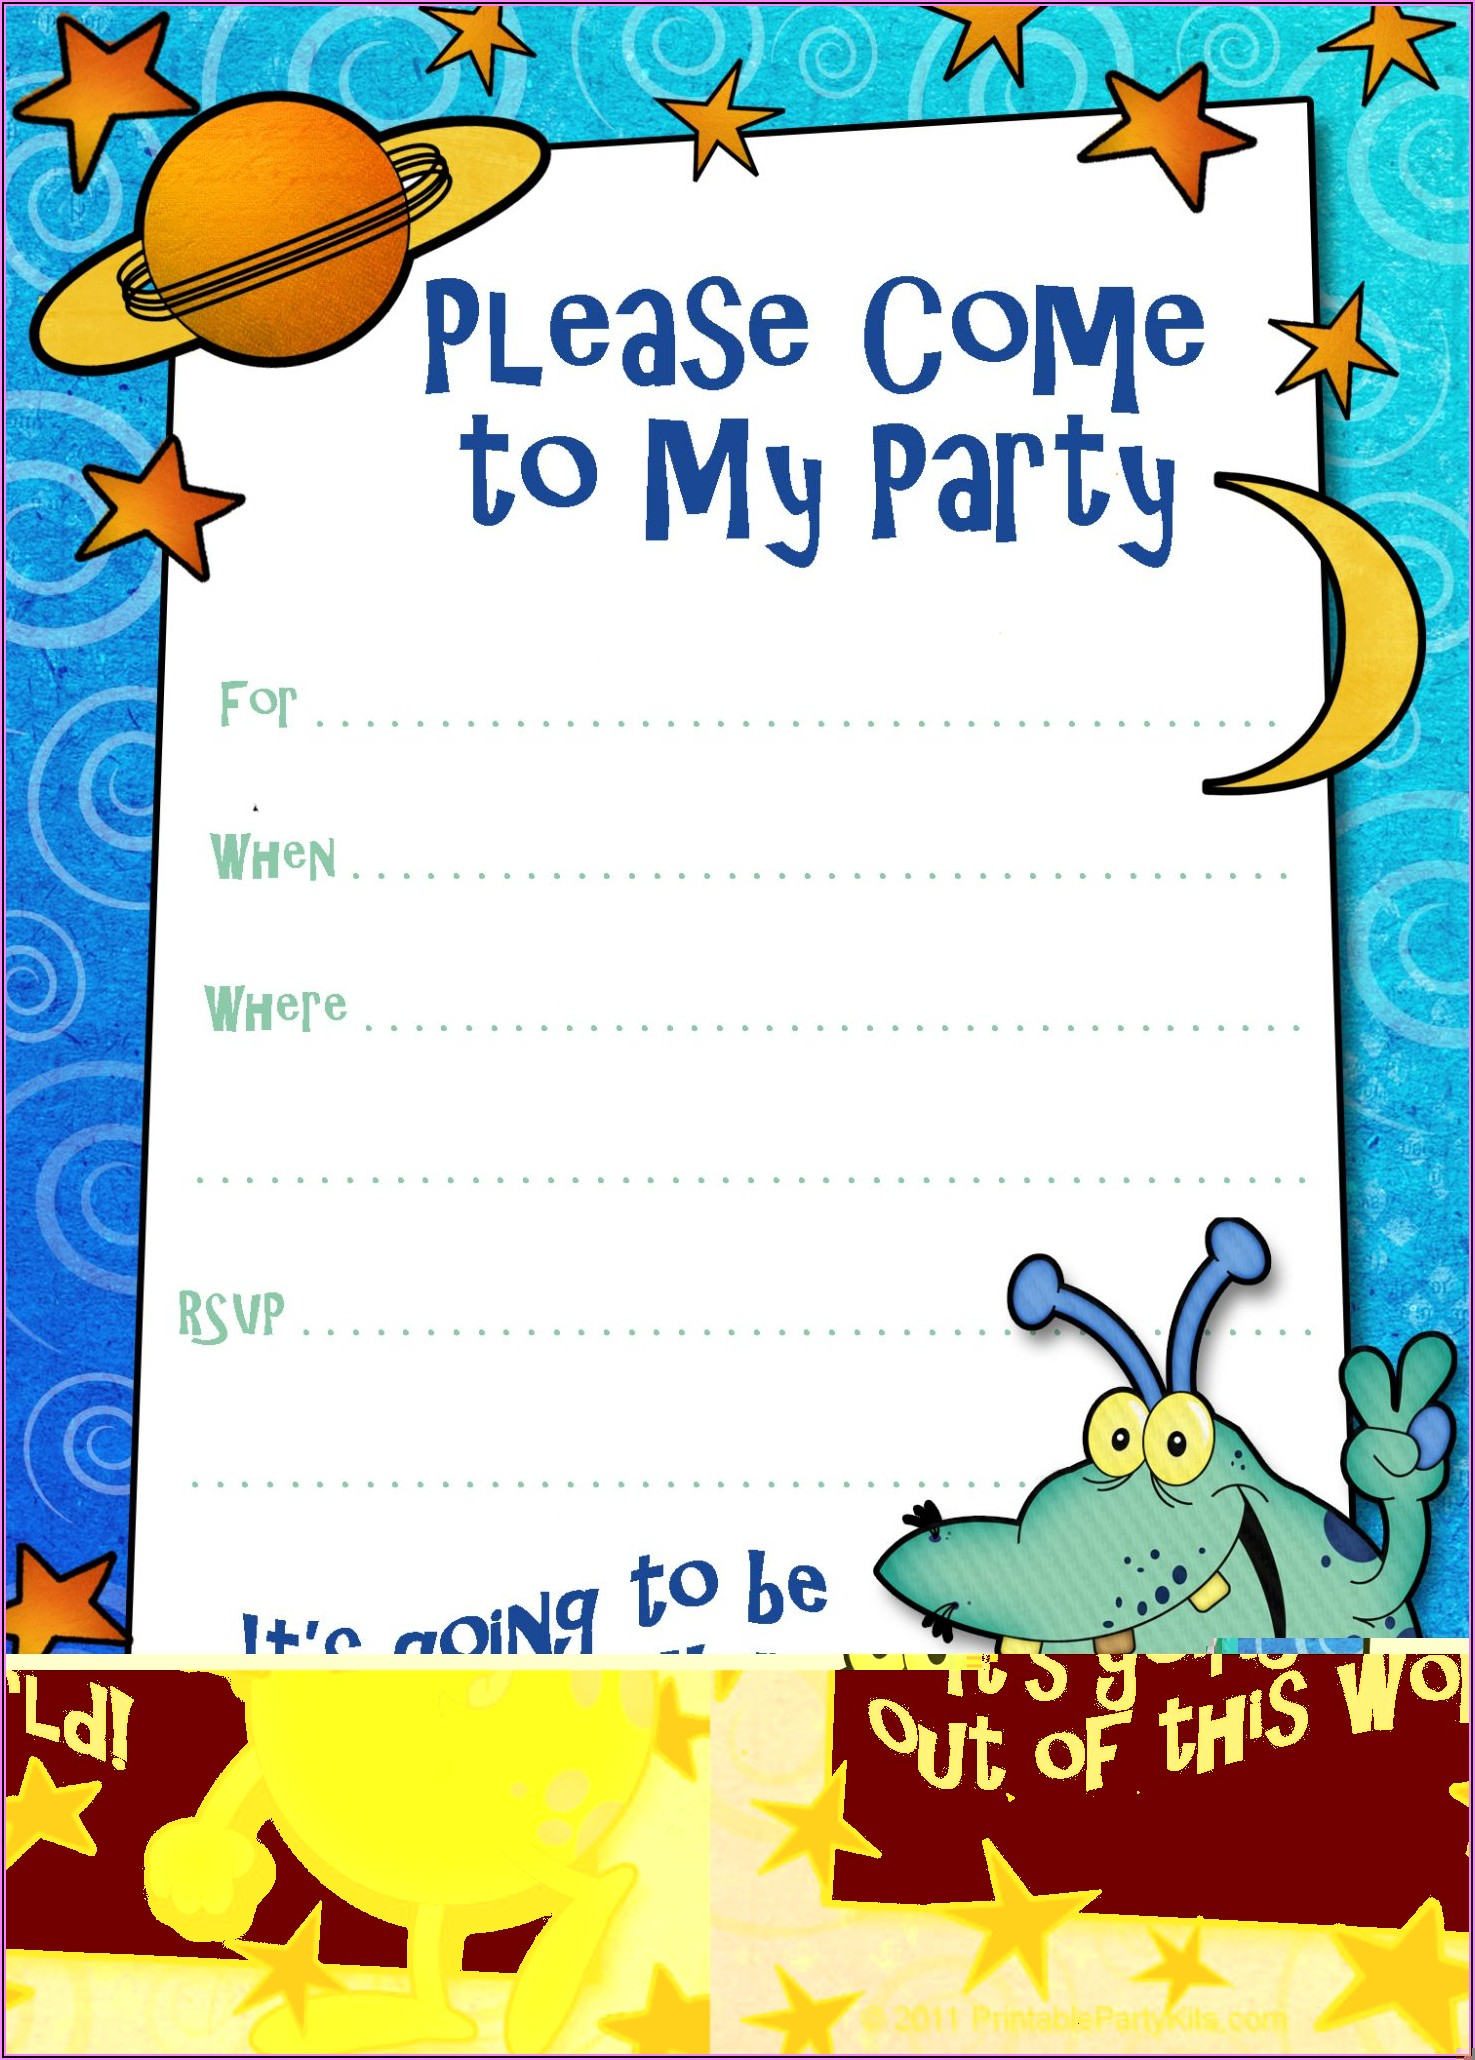 Please Come
to My Party
For
When
Where
RSVP
It's going to be
It's going
out of this wo
rld!
© 2011 PrintablePartyKits.com